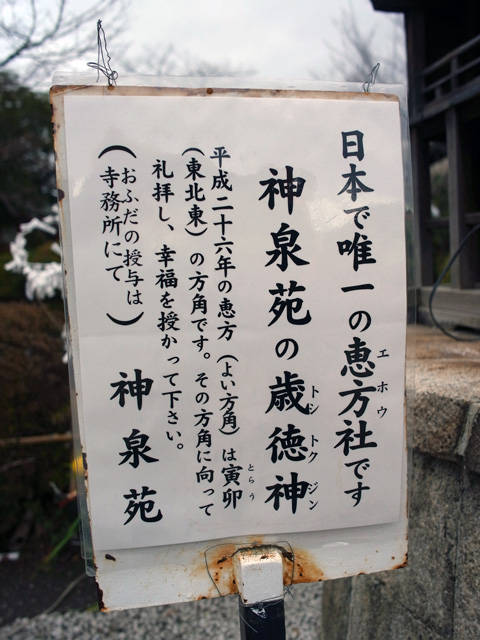 日本で唯一の恵方社です
エホウ
神泉苑の歳徳神
トシトクジン
平成二十六年の恵方（よい方角）は寅卯
とらう
（東北東）の方角です。その方角に向って
礼拝し、幸福を授かって下さい。
（おふだの授与は
寺務所にて）
神泉苑